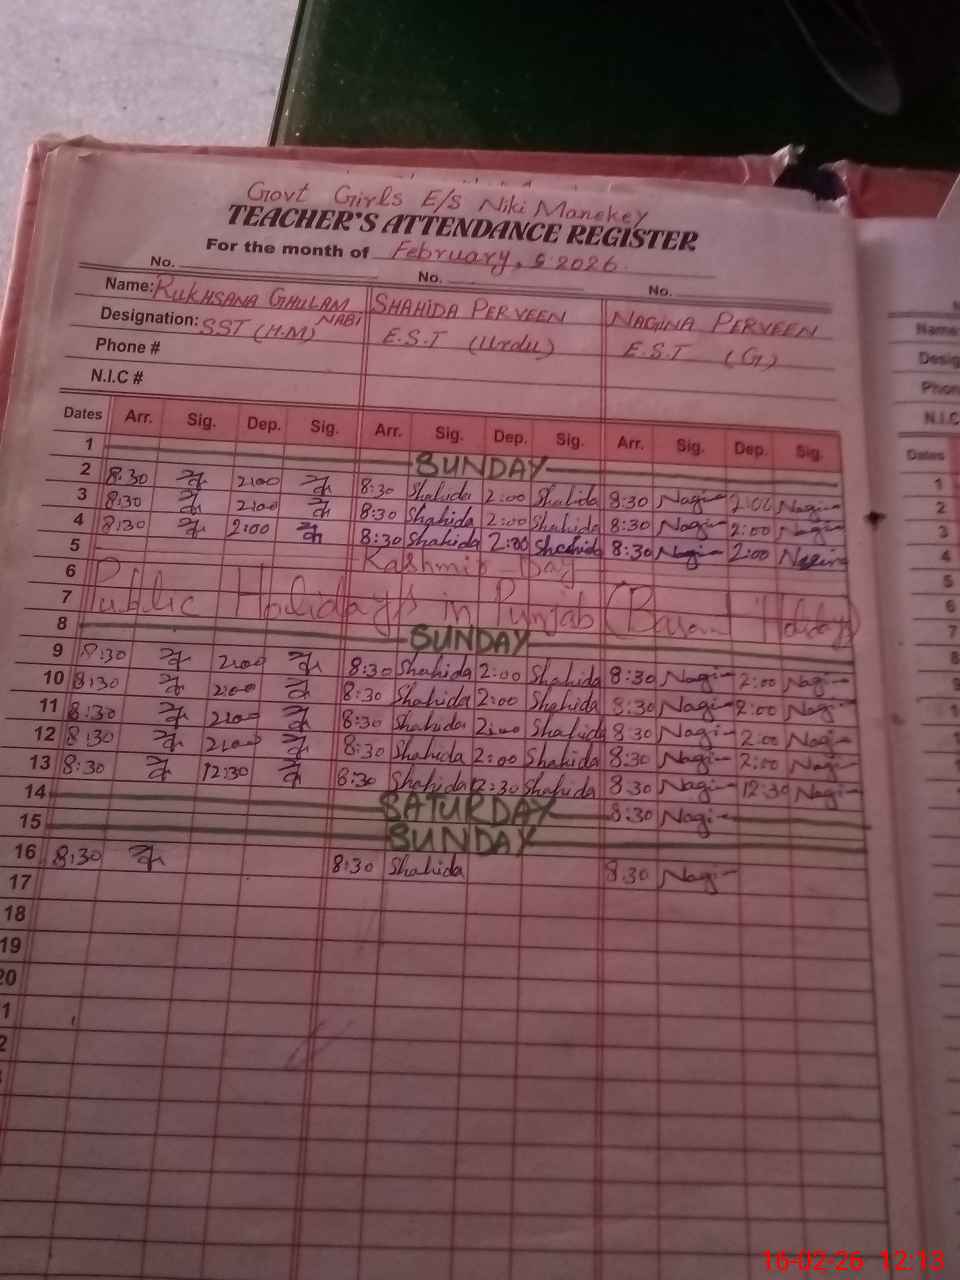 Govt Girls E/S Niki Manekey
TEACHER'S ATTENDANCE REGISTER
For the month of February, 2026.
No. No. No.
Name: RUKHSANA GHULAM NABI SHAHIDA PERVEEN NAGINA PERVEEN
Designation: SST (H.M) E.S.T (Urdu) E.S.T (G)
Phone #
N.I.C #
Dates Arr. Sig. Dep. Sig. Arr. Sig. Dep. Sig. Arr. Sig. Dep. Sig.
1 SUNDAY
2 8:30 2:00 8:30 Shahida 2:00 Shahida 8:30 Nagi 2:00 Nagi
3 8:30 2:00 8:30 Shahida 2:00 Shahida 8:30 Nagi 2:00 Nagi
4 8:30 2:00 8:30 Shahida 2:00 Shahida 8:30 Nagi 2:00 Nagin
5 Kashmir Day
6
7 Public Holidays in Punjab (Basant Holidays)
8 SUNDAY
9 8:30 2:00 8:30 Shahida 2:00 Shahida 8:30 Nagi 2:00 Nagi
10 8:30 2:00 8:30 Shahida 2:00 Shahida 8:30 Nagi 2:00 Nagi
11 8:30 2:00 8:30 Shahida 2:00 Shahida 8:30 Nagi 2:00 Nagi
12 8:30 2:00 8:30 Shahida 2:00 Shahida 8:30 Nagi 2:00 Nagi
13 8:30 12:30 8:30 Shahida 12:30 Shahida 8:30 Nagi 12:30 Nagi
14 SATURDAY 8:30 Nagi
15 SUNDAY
16 8:30 8:30 Shahida 8:30 Nagi
17
18
19
20
1
2
Name
Desig
Phon
N.I.C
Dates
1
2
3
4
5
6
7
8
16-02-26 12:13